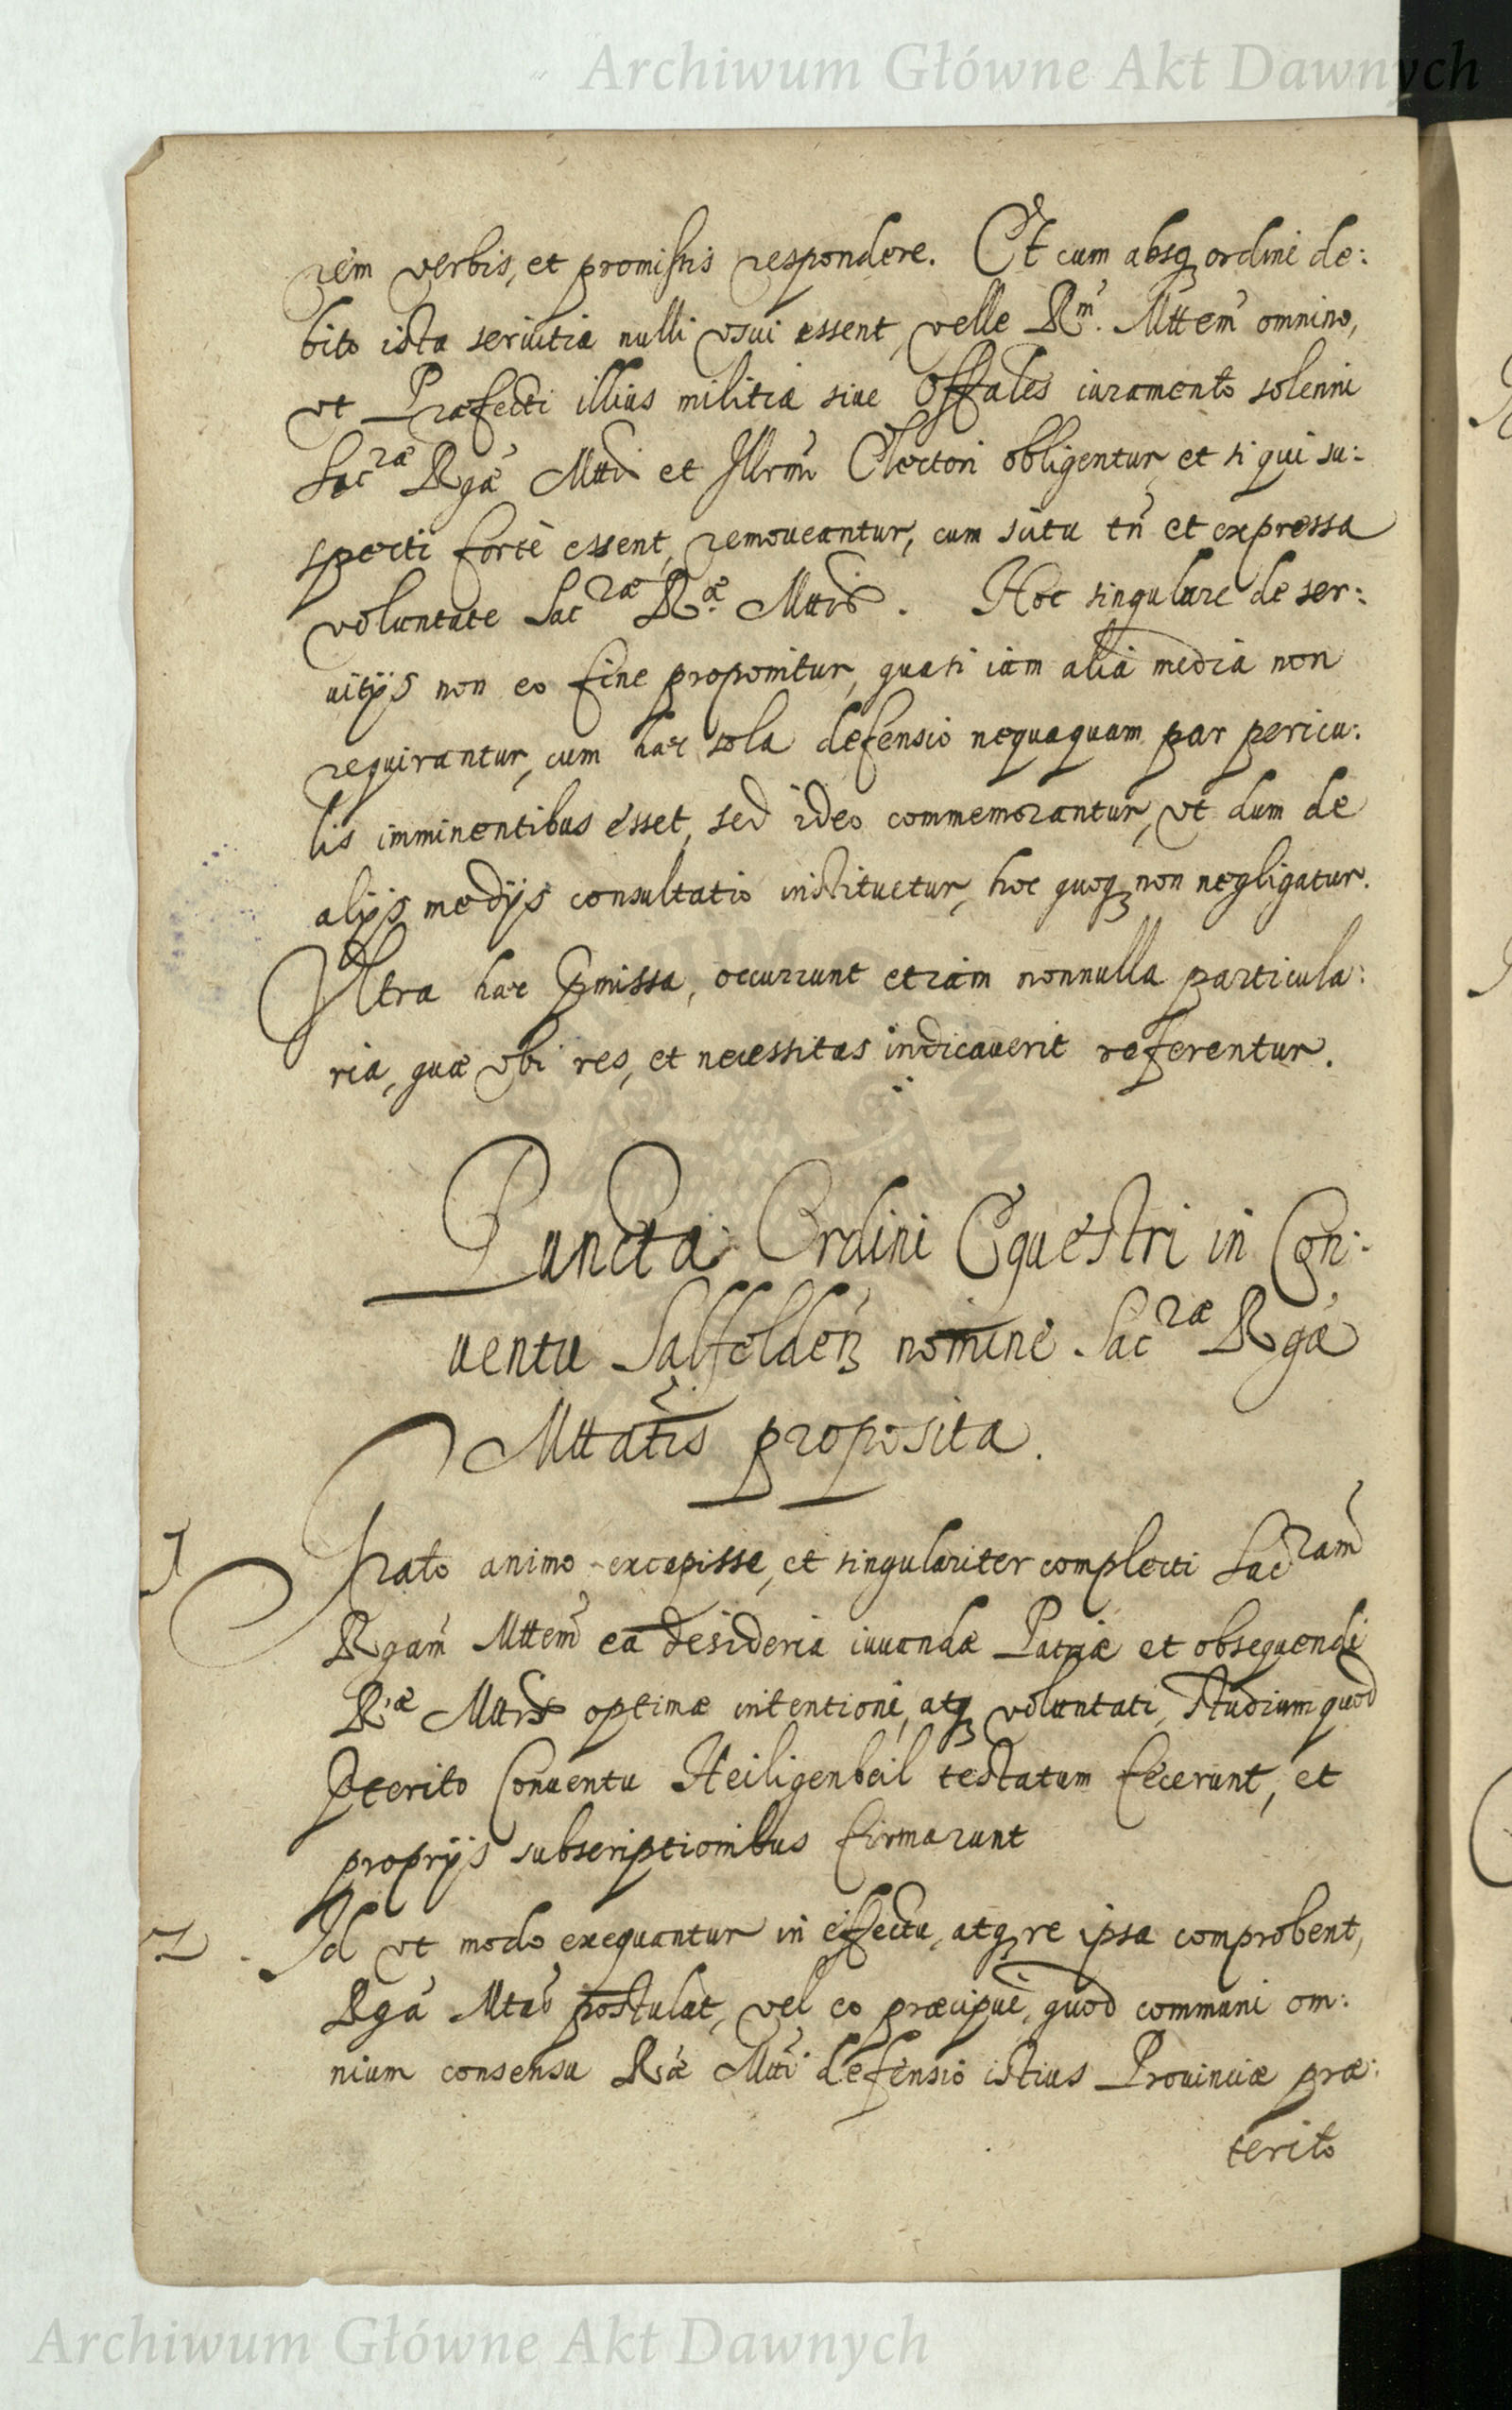 Archiwum Główne Akt Dawnych
rem verbis, et promissis respondere. Et cum absq ordini de:
bito ista seruitia nulli vsui essent, velle Rm. Mttem omnino,
vt Præfecti illius militiæ siue Offales iuramento solenni
Sacræ Rgæ Mtti et Illrmo Electori obligentur, et si qui su:
specti fortè essent, remoueantur, cum scitu tn et expressa
voluntate Sacræ Ræ Mttis. Hoc singulare de ser:
uitijs non eo fine proponitur, quasi iam alia media non
requirantur, cum hæc sola defensio nequaquam par pericu:
lis imminentibus esset, sed ideo commemorantur, vt dum de
alijs medijs consultatio instituetur, hoc quoq non negligatur.
Vltra hæc pmissa, occurrunt etiam nonnulla particula:
ria, quæ vbi res, et necessitas indicauerit referentur.
Puncta Ordini Equestri in Con:
uentu Salfelden nomine Sacræ Rgæ
Mttatis proposita.
1 Grato animo excepisse, et singulariter complecti Sacram
Rgam Mttem ea desideria iuuandæ Patriæ et obsequendi
Ræ Mttis optimæ intentioni, atq voluntati, studium quod
pterito Conuentu Heiligenbeil testatum fecerunt, et
proprijs subscriptionibus firmarunt
2. Id vt modo exequantur in effectu, atq re ipsa comprobent,
Rga Mtas postulat, vel eo præcipuè, quod communi om:
nium consensu Ræ Mtti defensio istius Prouinciæ præ:
terito
Archiwum Główne Akt Dawnych